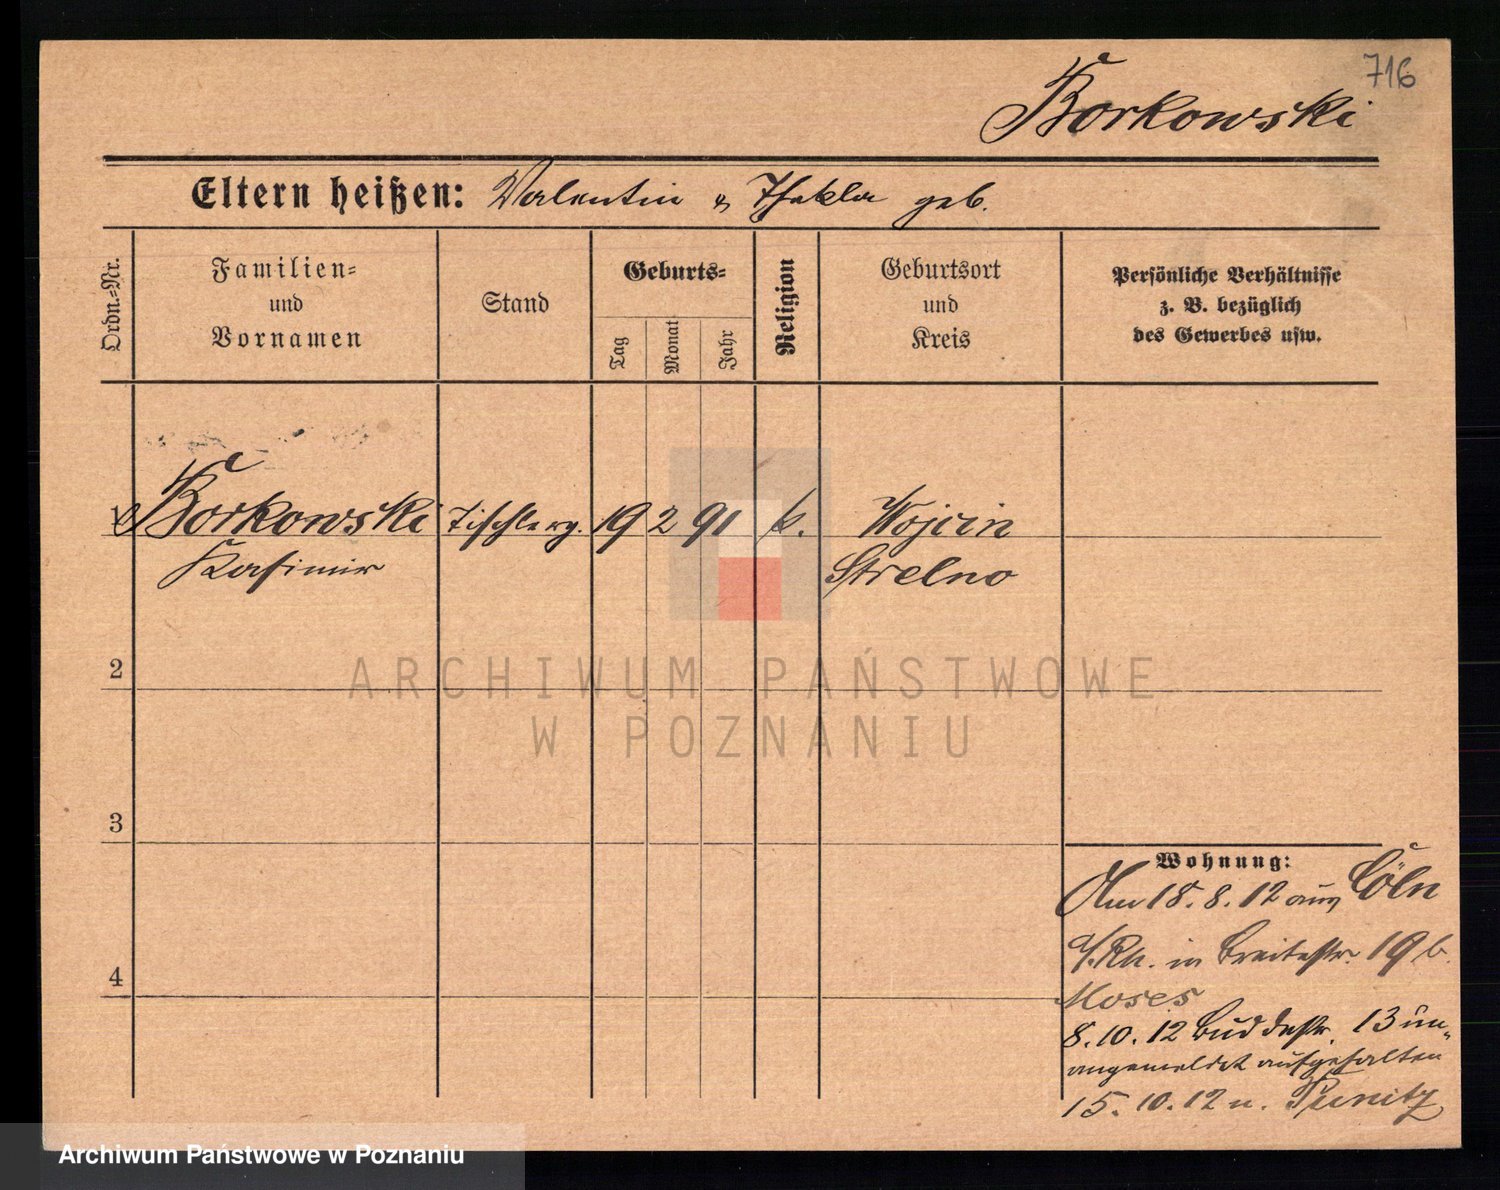 716
Borkowski
Eltern heißen: Valentin & Thekla geb.
Ordn.=Nr.
Familien=
und
Vornamen
Stand
Geburts=
Tag
Monat
Jahr
Religion
Geburtsort
und
Kreis
Persönliche Verhältnisse
z. B. bezüglich
des Gewerbes usw.
Borkowski Tischlerg. 19 2 91 k. Wojcin
Kasimir Strelno
2
3
4
Wohnung:
Am 18. 8. 12 aus Cöln
a/Rh. in Breitestr. 19 b.
Moses
8. 10. 12 Buddestr. 13 un-
angemeldet aufgehalten
15. 10. 12 n. Punitz
ARCHIWUM PAŃSTWOWE
W POZNANIU
Archiwum Państwowe w Poznaniu